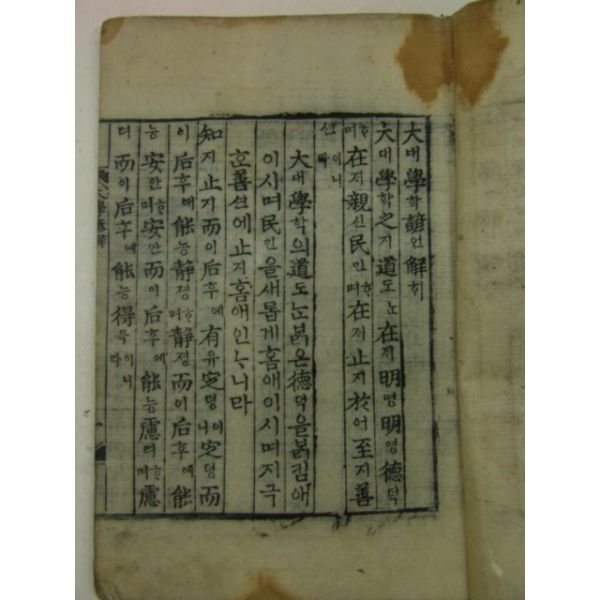 大대學학諺언解ᄒᆡ
大대學학之지道도ᄂᆞᆫ在ᄌᆡ明명明명德덕
ᄒᆞ며在ᄌᆡ親신民민ᄒᆞ며在ᄌᆡ止지於어至지善
션이니라
大대學학의道도ᄂᆞᆫᄇᆞᆰ온德덕을ᄇᆞᆰ킴애
이시며民민을새롭게홈애이시며지극
ᄒᆞᆫ善션에止지홈애인ᄂᆞ니라
知지止지而이后후에有유定뎡이니定뎡而
이后후에能능静졍ᄒᆞ며静졍而이后후에能
능安안ᄒᆞ며安안而이后후에能능慮려ᄒᆞ며慮
려而이后후에能능得득이니라
大學諺解